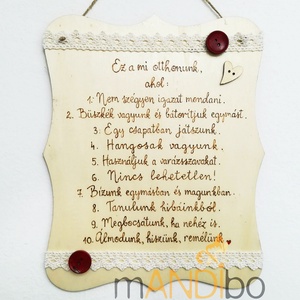 Ez a mi otthonunk,
ahol:
1. Nem szégyen igazat mondani.
2. Büszkék vagyunk és bátorítjuk egymást.
3. Egy csapatban játszunk.
4. Hangosak vagyunk.
5. Használjuk a varázsszavakat.
6. Nincs lehetetlen!
7. Bízunk egymásban és magunkban.
8. Tanulunk hibáinkból.
9. Megbocsátunk, ha nehéz is.
10. Álmodunk, hiszünk, remélünk.
mANDIbo